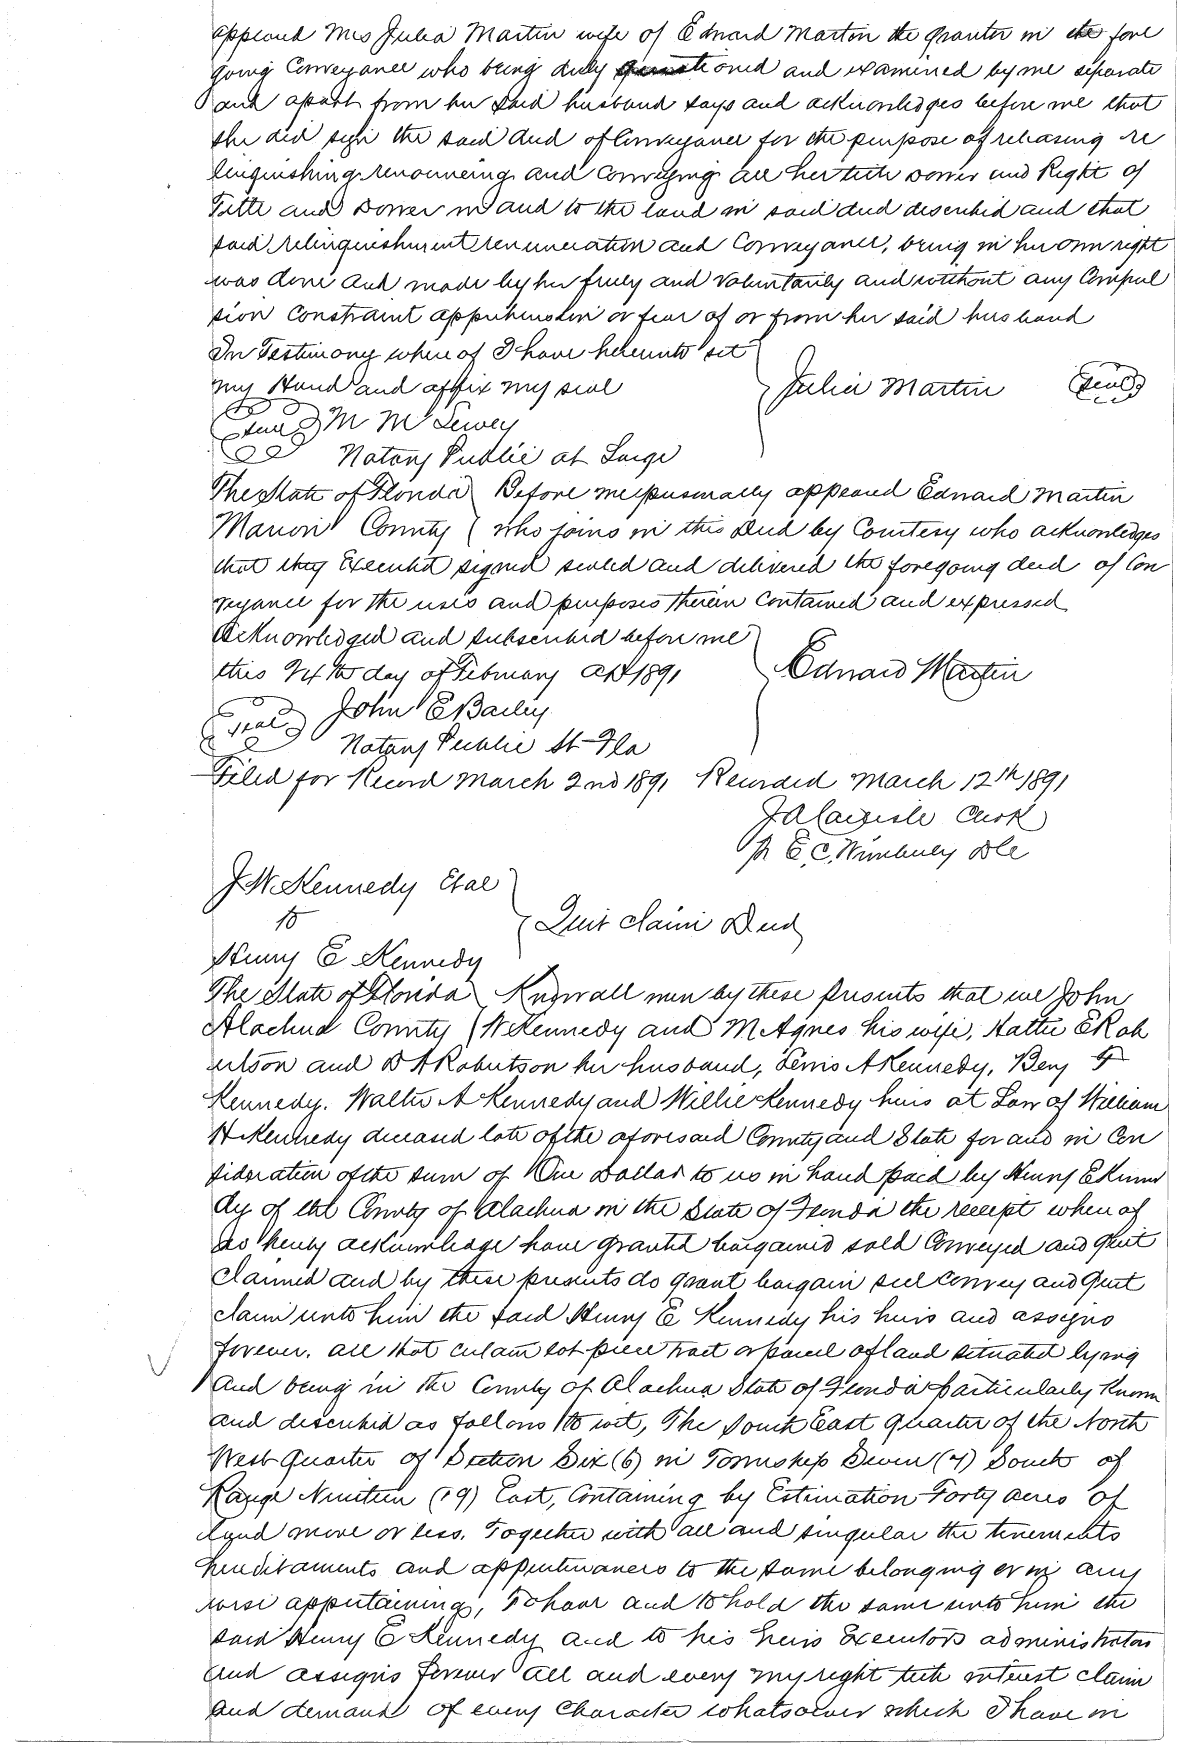 appeared Mrs Julia Martin wife of Edward Martin the grantor in the fore
going Conveyance who being duly questioned and examined by me separate
and apart from her said husband says and acknowledges before me that
she did sign the said deed of Conveyance for the purpose of releasing re
linquishing renouncing and conveying all her title Dower and Right of
Title and Dower in and to the land in said deed described and that
said relinquishment renunceration and Conveyance, being in her own right
was done and made by her freely and voluntarily and without any Compul
sion Constraint apprehension or fear of or from her said husband
In Testimony where of I have hereunto set
my Hand and affix my seal
Julia Martin Seal
Seal M M Lewey
Notary Public at Large
The State of Florida Before me personally appeared Edward Martin
Marion County who joins in this Deed by Courtesy who acknowledges
that they Executed signed sealed and delivered the foregoing deed of Con
veyance for the uses and purposes therein contained and expressed
Acknowledged and subscribed before me
this 24th day of February AD 1891
Edward Martin
Seal John E Bailey
Notary Public St Fla
Filed for Record March 2nd 1891 Recorded March 12th 1891
J A Carlisle Clerk
pr E. C. Wimberly DC
J W Kennedy Etal
to
Quit claim Deed
Henry E Kennedy
The State of Florida Know all men by these presents that we John
Alachua County W Kennedy and M Agnes his wife, Hattie E Rob
ertson and D A Robertson her husband, Lewis A Kennedy, Benj F
Kennedy. Walter A Kennedy and Willie Kennedy heirs at Law of William
H Kennedy deceased late of the aforesaid County and State for and in Con
sideration of the sum of One Dollar to us in hand paid by Henry E Kenne
dy of the County of Alachua in the State of Florida the receipt where of
is hereby acknowledge have granted bargained sold Conveyed and quit
claimed and by these presents do grant bargain sell convey and quit
claim unto him the said Henry E Kennedy his heirs and assigns
forever. all that certain lot piece tract or parcel of land situated lying
and being in the County of Alachua State of Florida particularly known
and described as follows to wit, The South East quarter of the North
West Quarter of Section Six (6) in Township Seven (7) South of
Range Nineteen (19) East, Containing by Estimation Forty acres of
land more or less. Together with all and singular the tenements
hereditaments and appurtenances to the same belonging or in any
wise appertaining, To have and to hold the same unto him the
said Henry E Kennedy and to his heirs Executors administrators
and assigns forever all and every my right title interest claim
and demand of every Character whatsoever which I have in